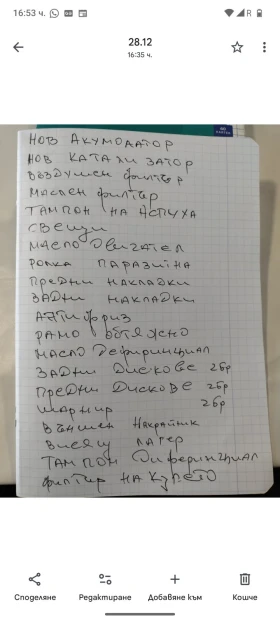 16:53 ч.
R
28.12
16:35 ч.
НОВ АКУМОЛАТОР
НОВ КАТАЛИЗАТОР
ВЪЗДУШЕН филтър
МАСЛЕН филтър
ТАМПОН НА АСПУХА
СВЕЩИ
МАСЛО ДВИГАТЕЛ
РОЛКА ПАРАЗИТНА
ПРЕДНИ НАКЛАДКИ
ЗАДНИ НАКЛАДКИ
АНТИФРИЗ
РАМО ОБТЯЖНО
МАСЛО ДЕФИРИНЦИАЛ
ЗАДНИ ДИСКОВЕ 2бр
ПРЕДНИ ДИСКОВЕ 2бр
ШАРНИР 2бр
ВЪНШЕН НАКРАЙНИК
ВИСЯЩ ЛАГЕР
ТАМПОН ДИФЕРИНЦИАЛ
ФИЛТЪР НА КУПЕТО
Споделяне
Редактиране
Добавяне към
Кошче